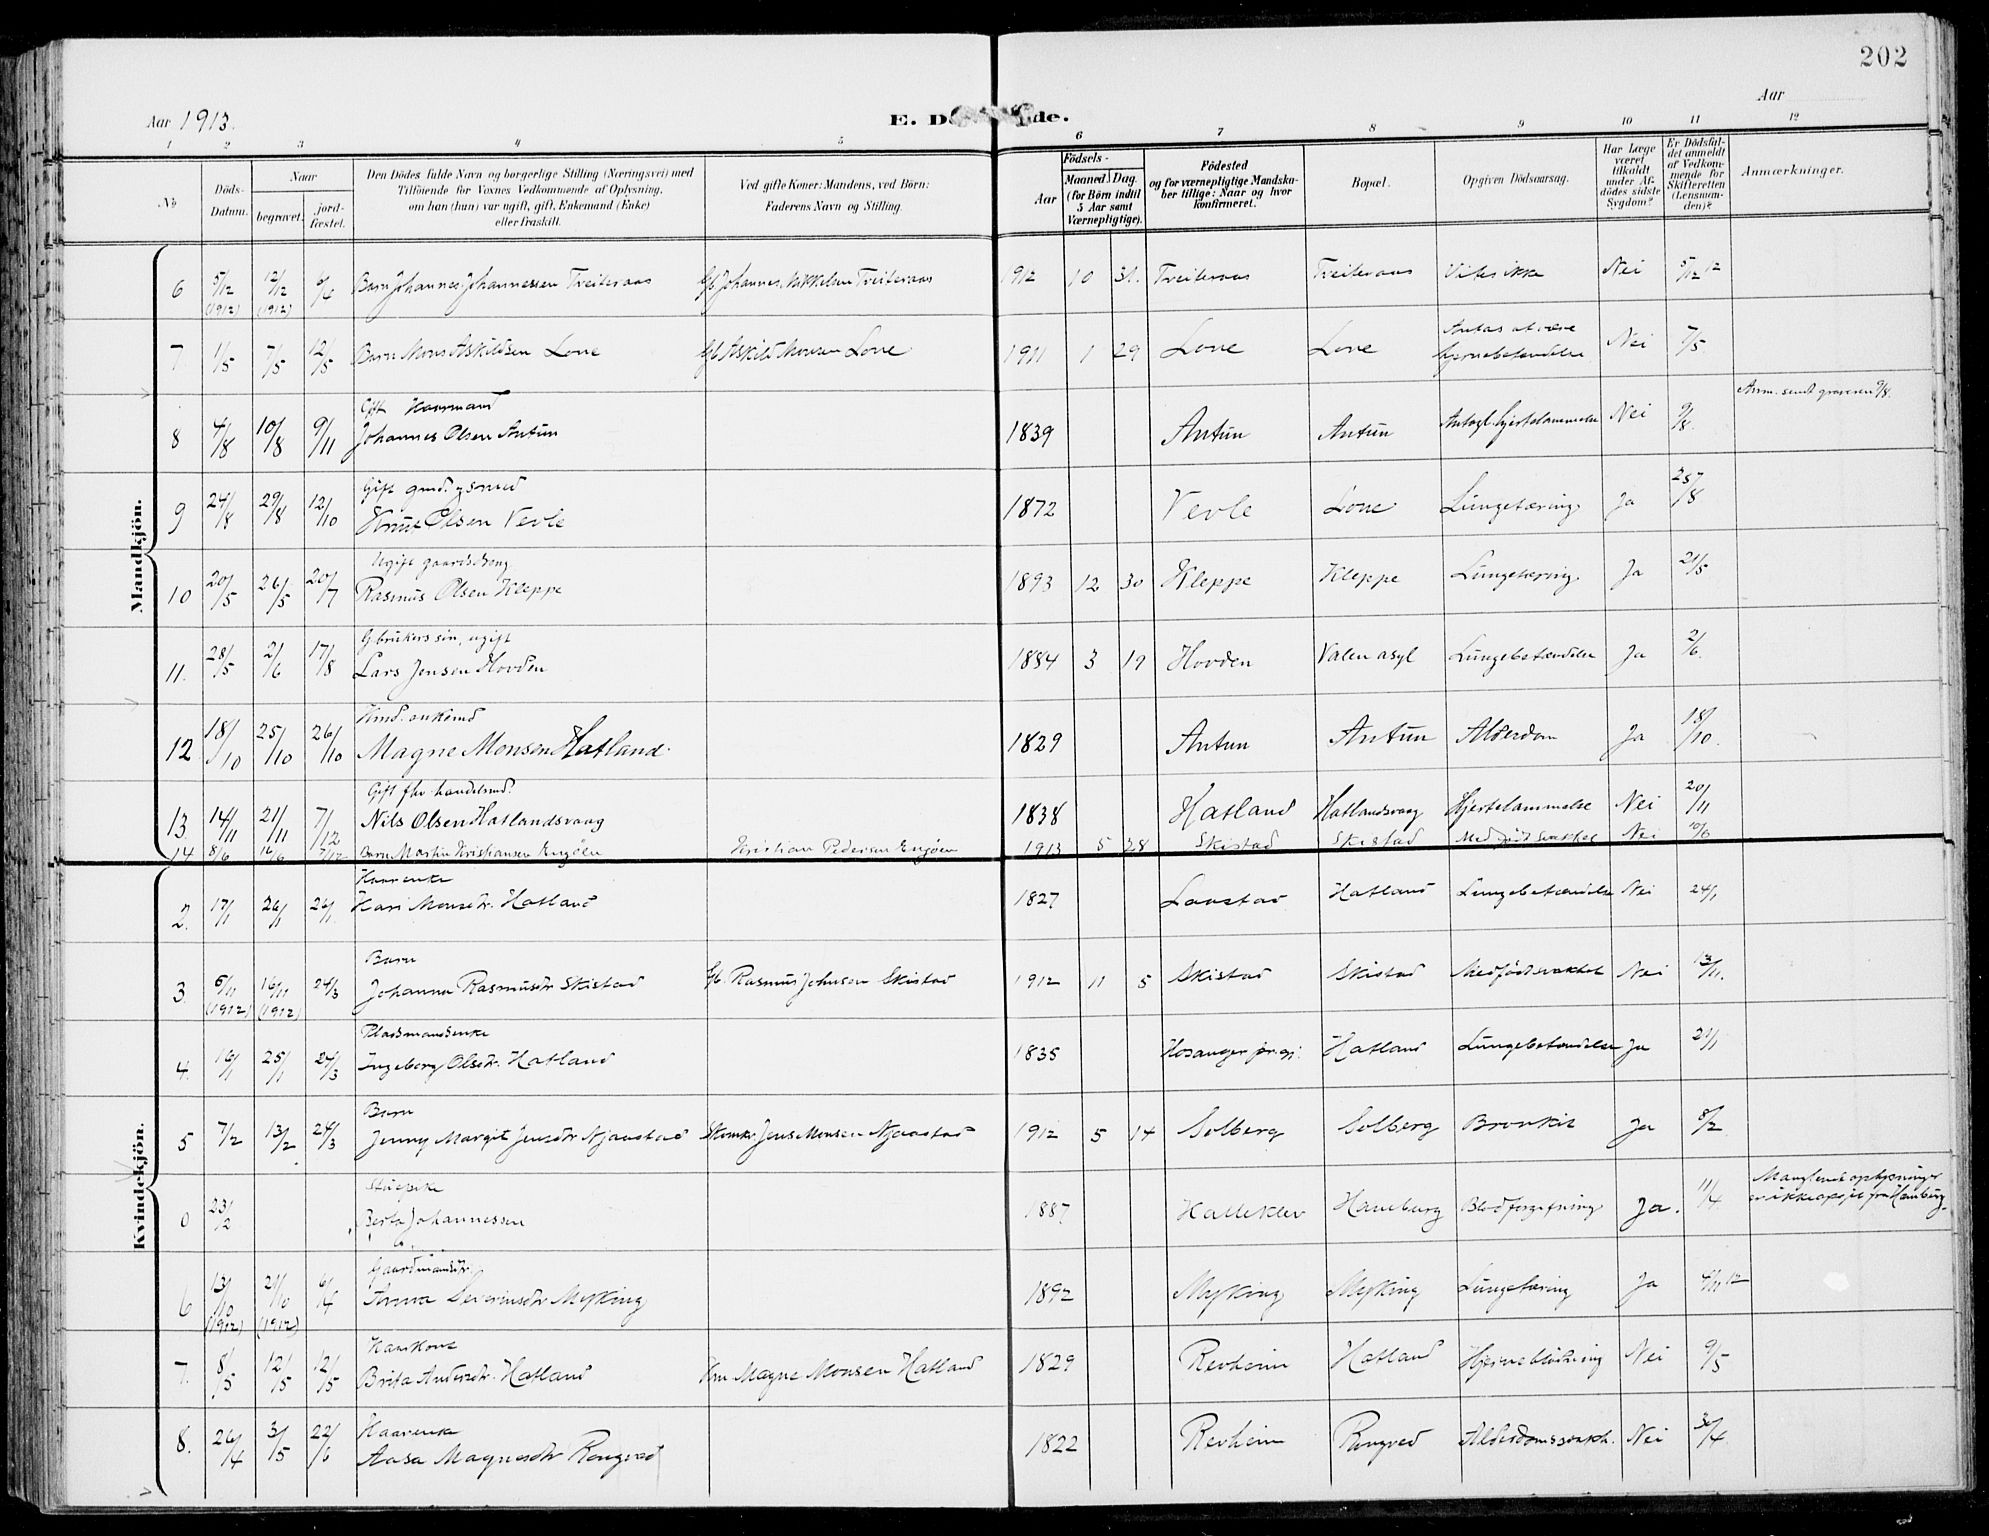 202
Aar 1913.
E. D de.
Aar
1 2 3 4 5 6 7 8 9 10 11 12
No
Döds-Datum.
Naar
begravet.
jord-fæstet.
Den Dödes fulde Navn og borgerlige Stilling (Næringsvei) med
Tilföiende for Voxnes Vedkommende af Oplysning,
om han (hun) var ugift, gift, Enkemand (Enke)
eller fraskilt.
Ved gifte Koner: Mandens, ved Börn:
Faderens Navn og Stilling.
Födsels-
Aar
Maaned. Dag.
(for Börn indtil
5 Aar samt
Værnepligtige).
Födested
og for værnepligtige Mandska-
ber tillige: Naar og hvor
konfirmeret.
Bopæl.
Opgiven Dödsaarsag.
Har Læge
været
tilkaldt
under Af-
dödes sidste
Sygdom?
Er Dödsfal-
det anmeldt
af Vedkom-
mende for
Skifteretten
(Lensman-
den)?
Anmærkninger.
Mandkjön.
6 5/12 (1912) 12/12 (1912) 6/4 Barn Johannes Johannessen Treiteraas Gb Johannes Mikkelsen Treiteraas 1912 10 31. Treiteraas Treiteraas Vites ikke Nei 5/12 12
7 1/5 7/5 12/5 Barn Mons Askildsen Lone Gb Askild Monsen Lone 1911 1 29 Lone Lone Antas at være hjernebetændelse Nei 7/5
8 4/8 10/8 9/11 Gift Kaarmand
Johannes Olsen Antun 1839 Antun Antun Antagl. hjertelammelse Nei 9/8. Anm. sendt graveren 9/8.
9 24/8 29/8 12/10 Gift gmd. og smed
Knut Olsen Vevle 1872 Vevle Lone Lungetæring Ja 25/8
10 20/5 26/5 20/7 Ugift gaardsdreng
Rasmus Olsen Kleppe 1893 12 30 Kleppe Kleppe Lungetæring Ja 21/5
11. 28/5 2/6 17/8 G.brukers søn, ugift
Lars Jensen Hovden 1884 3 19 Hovden Valen asyl Lungebetændelse Ja 2/6.
12 18/10 25/10 26/10 Kmd. enkemd
Magne Monsen Hatland 1829 Antun Antun Alderdom Ja 18/10.
13 14/11 21/11 7/12 Gift fhv. handelsmd.
Nils Olsen Hatlandsvaag 1838 Hatland Hatlandsvaag Hjertelammelse Nei 20/11
14 8/6 16/6 7/12 Barn Martin Kristiansen Engöen Kristian Pedersen Engöen 1913 5 28 Skistad Skistad Medfödt svakhet Nei 10/6
Kvindekjön.
2. 17/1 26/1 26/1. Kaarenke
Kari Monsdtr. Hatland 1827 Laastad Hatland Lungebetændelse Nei 24/1
3. 6/11 (1912) 16/11 (1912) 24/3 Barn
Johanna Rasmusdtr Skistad Gb. Rasmus Johnsen Skistad 1912 11 5 Skistad Skistad Medfödt svakhet Nei 13/11.
4. 16/1 25/1 24/3 Pladsmandsenke
Ingeborg Olsdtr. Hatland 1835 Hosanger prgj. Hatland Lungebetændelse Ja 21/1
5 7/2 13/2 24/3 Barn
Jenny Margit Jensdtr Njaastad Skomkr. Jens Monsen Njaastad 1912 5 14 Solberg Solberg Bronkit Ja 8/2
0 23/2 Stuepike
Berta Johannessen 1887 Halleklev Hamburg Blodforgiftning Ja. 11/4 Manglende oplysninger
er ikke opgit fra Hamburg.
6 13/10 (1912) 21/10 (1912) 6/4 Gaardmandsdtr.
Anna Severinsdtr Myking 1892 Myking Myking Lungetæring Ja 4/11 12
7. 8/5 12/5 12/5 Kaarkone
Brita Andersdtr. Hatland Km Magne Monsen Hatland 1829 Revheim Hatland Hjerneblödning Nei 9/5
8. 26/4 3/5 22/6 Kaarenke
Aasa Magnesdtr Rongved 1822 Revheim Rongved Alderdomssvakh. Nei 30/4